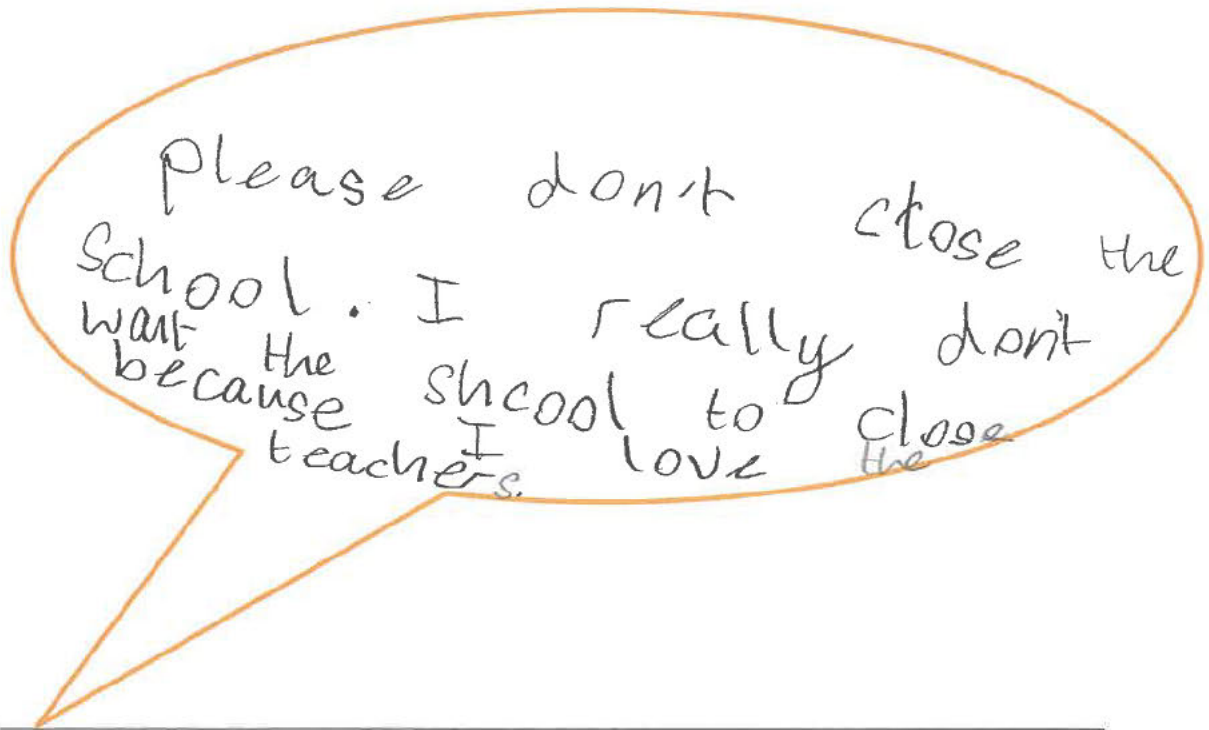 please don't close the
school. I really don't
want the shcool to close
because I love the
teachers.